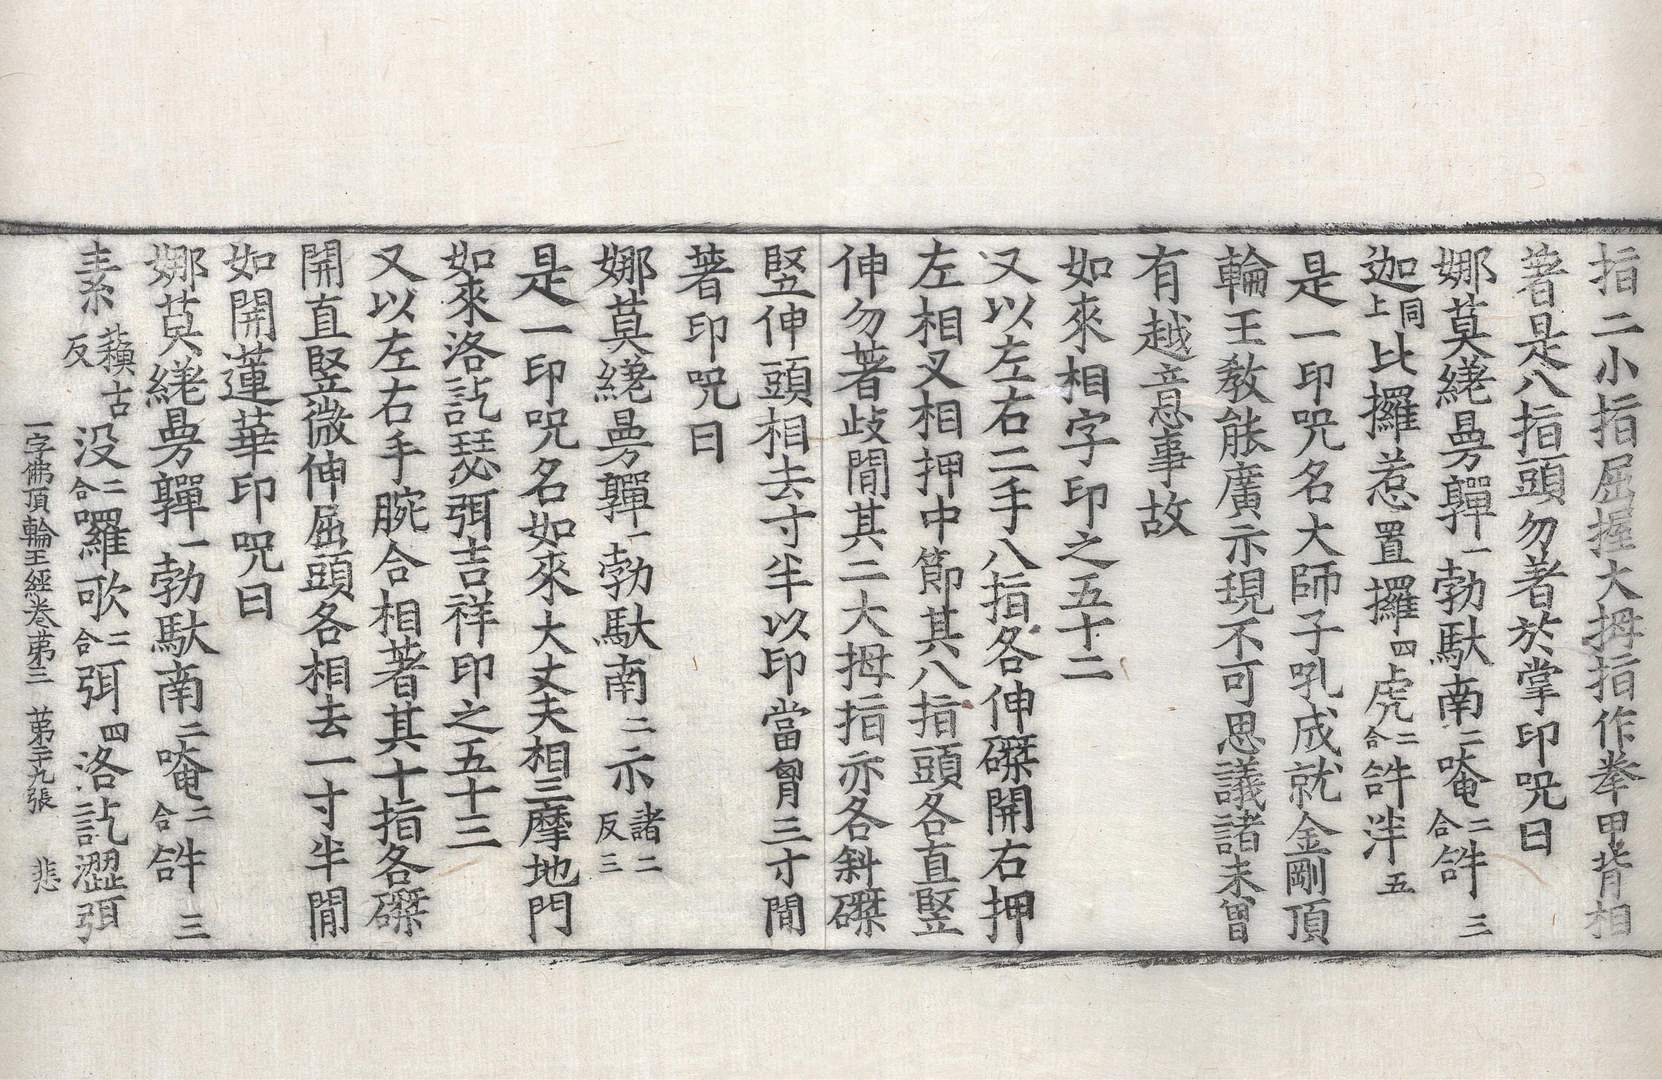 指二小指屈握大拇指作拳甲背相
著是八指頭勿著於掌印呪曰
娜莫繞曼彈一勃馱南二唵二合𤙖三
迦上同比攞惹置攞四虎二合𤙖泮五
是一印呪名大師子吼成就金剛頂
輪王教能廣示現不可思議諸未曾
有越意息事故
如來相字印之五十二
又以左右二手八指各伸磔開右押
左相叉相押中節其八指頭各直竪
伸勿著歧間其二大拇指亦各斜磔
竪伸頭相去寸半以印當胷三寸間
著印呪曰
娜莫繞曼彈一勃馱南二示諸二反三
是一印呪名如來大丈夫相三摩地門
如來洛訖瑟弭吉祥印之五十三
又以左右手腕合相著其十指各磔
開直竪微伸屈頭各相去一寸半間
如開蓮華印呪曰
娜莫繞曼彈一勃馱南二唵二合𤙖三
素蘓古反没二合囉歌二合弭四洛訖澀弭
一字佛頂輪王經卷第三　第二十九張　悲